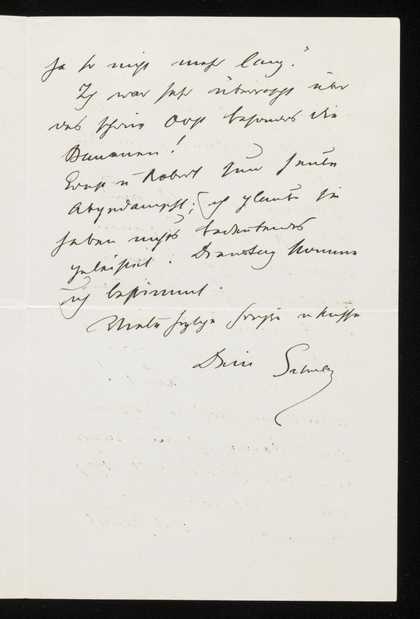 ja so nicht mehr lang."
Ich war sehr überrascht über
das schöne Obst besonders die
Bananen!
Ernst u Robert sind heute
abgedampft; ich glaube sie
haben nichts bedeutendes
geleistet. Dienstag komme
ich bestimmt.
Viele Grüße u Küsse
Dein